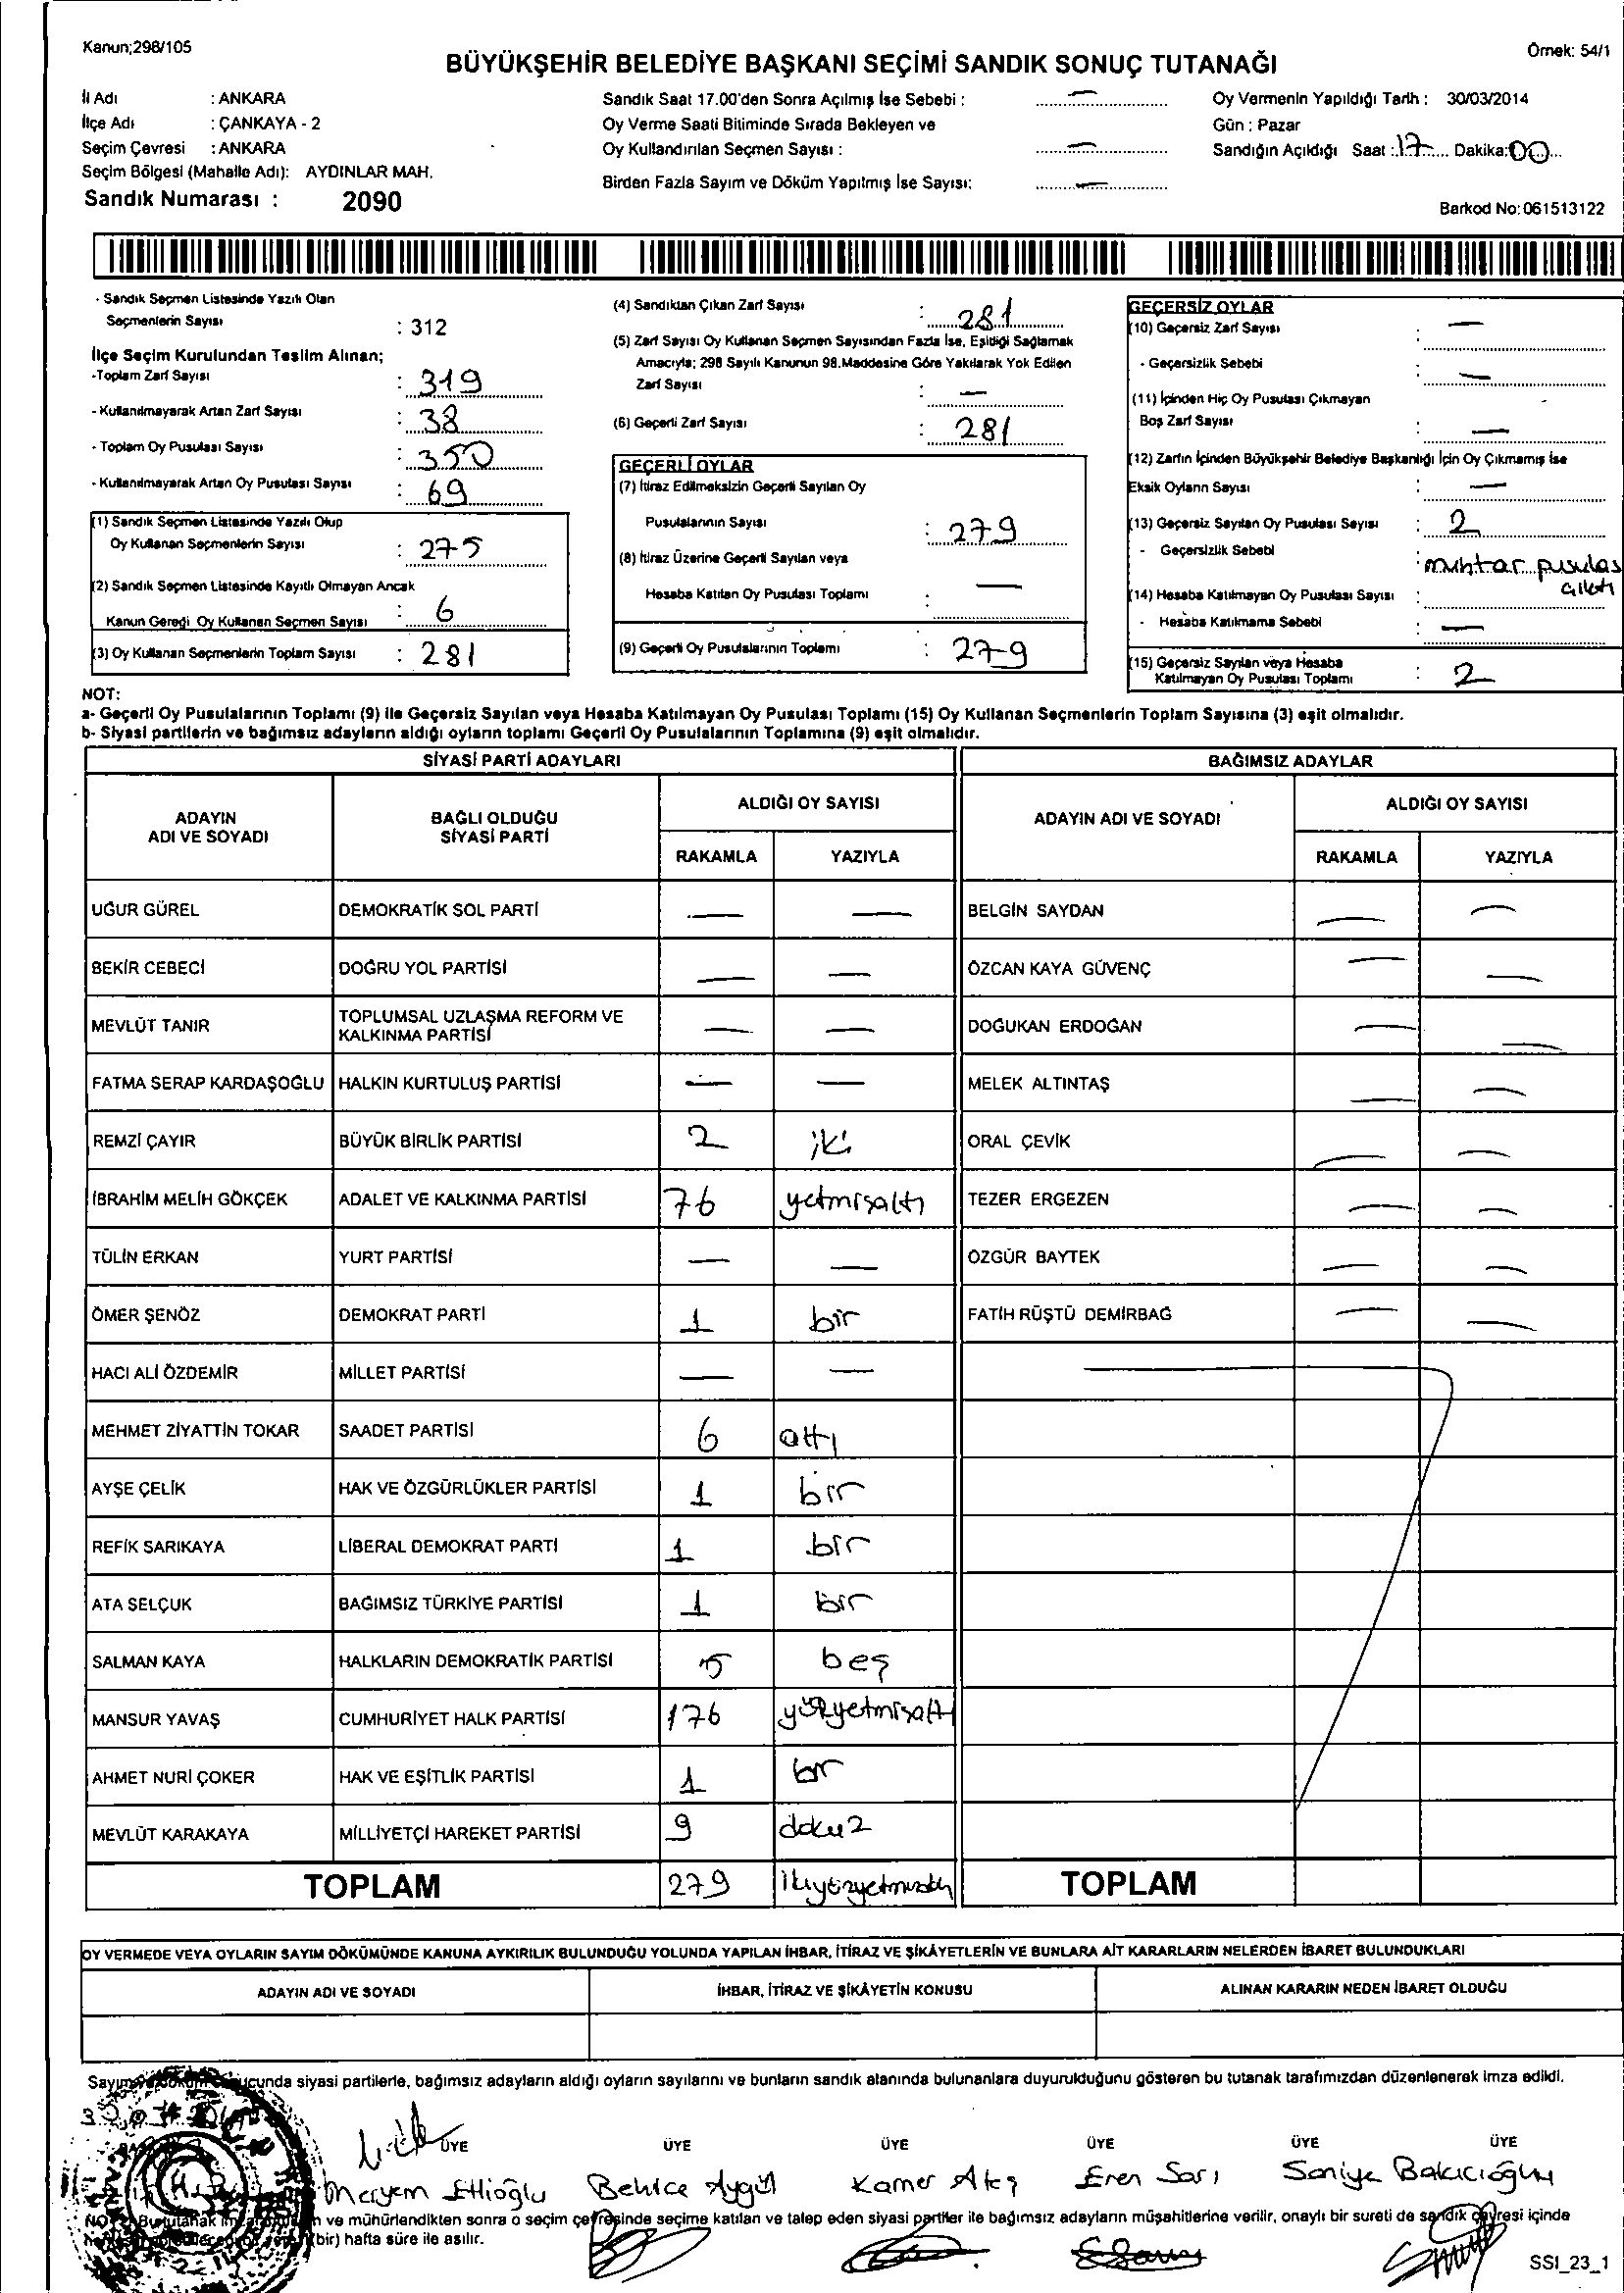 Kanun;298/105
Örnek: 54/1
BÜYÜKŞEHİR BELEDİYE BAŞKANI SEÇİMİ SANDIK SONUÇ TUTANAĞI
İl Adı : ANKARA
İlçe Adı : ÇANKAYA - 2
Seçim Çevresi : ANKARA
Seçim Bölgesi (Mahalle Adı): AYDINLAR MAH.
Sandık Numarası : 2090
Sandık Saat 17.00'den Sonra Açılmış İse Sebebi : —
Oy Verme Saati Bitiminde Sırada Bekleyen ve
Oy Kullandırılan Seçmen Sayısı : —
Birden Fazla Sayım ve Döküm Yapılmış İse Sayısı: —
Oy Vermenin Yapıldığı Tarih : 30/03/2014
Gün : Pazar
Sandığın Açıldığı Saat : 17 Dakika: 00
Barkod No: 061513122
- Sandık Seçmen Listesinde Yazılı Olan
Seçmenlerin Sayısı : 312
İlçe Seçim Kurulundan Teslim Alınan;
-Toplam Zarf Sayısı : 319
- Kullanılmayarak Artan Zarf Sayısı : 38
- Toplam Oy Pusulası Sayısı : 350
- Kullanılmayarak Artan Oy Pusulası Sayısı : 69
(1) Sandık Seçmen Listesinde Yazılı Olup
Oy Kullanan Seçmenlerin Sayısı : 275
(2) Sandık Seçmen Listesinde Kayıtlı Olmayan Ancak
Kanun Gereği Oy Kullanan Seçmen Sayısı : 6
(3) Oy Kullanan Seçmenlerin Toplam Sayısı : 281
(4) Sandıktan Çıkan Zarf Sayısı : 281
(5) Zarf Sayısı Oy Kullanan Seçmen Sayısından Fazla İse, Eşitliği Sağlamak
Amacıyla; 298 Sayılı Kanunun 98.Maddesine Göre Yakılarak Yok Edilen
Zarf Sayısı : —
(6) Geçerli Zarf Sayısı : 281
GEÇERLİ OYLAR
(7) İtiraz Edilmeksizin Geçerli Sayılan Oy
Pusulalarının Sayısı : 279
(8) İtiraz Üzerine Geçerli Sayılan veya
Hesaba Katılan Oy Pusulası Toplamı : —
(9) Geçerli Oy Pusulalarının Toplamı : 279
GEÇERSİZ OYLAR
(10) Geçersiz Zarf Sayısı —
- Geçersizlik Sebebi —
(11) İçinden Hiç Oy Pusulası Çıkmayan
Boş Zarf Sayısı : —
(12) Zarfın İçinden Büyükşehir Belediye Başkanlığı İçin Oy Çıkmamış İse
Eksik Oyların Sayısı : —
(13) Geçersiz Sayılan Oy Pusulası Sayısı : 2
- Geçersizlik Sebebi : muhtar pusulas
çıktı
(14) Hesaba Katılmayan Oy Pusulası Sayısı :
- Hesaba Katılmama Sebebi : —
(15) Geçersiz Sayılan veya Hesaba
Katılmayan Oy Pusulası Toplamı : 2
NOT:
a- Geçerli Oy Pusulalarının Toplamı (9) ile Geçersiz Sayılan veya Hesaba Katılmayan Oy Pusulası Toplamı (15) Oy Kullanan Seçmenlerin Toplam Sayısına (3) eşit olmalıdır.
b- Siyasi partilerin ve bağımsız adayların aldığı oyların toplamı Geçerli Oy Pusulalarının Toplamına (9) eşit olmalıdır.
SİYASİ PARTİ ADAYLARI BAĞIMSIZ ADAYLAR
ADAYIN ADI VE SOYADI BAĞLI OLDUĞU SİYASİ PARTİ ALDIĞI OY SAYISI ADAYIN ADI VE SOYADI ALDIĞI OY SAYISI
RAKAMLA YAZIYLA RAKAMLA YAZIYLA
UĞUR GÜREL DEMOKRATİK SOL PARTİ — — BELGİN SAYDAN — —
BEKİR CEBECİ DOĞRU YOL PARTİSİ — — ÖZCAN KAYA GÜVENÇ — —
MEVLÜT TANIR TOPLUMSAL UZLAŞMA REFORM VE KALKINMA PARTİSİ — — DOĞUKAN ERDOĞAN — —
FATMA SERAP KARDAŞOĞLU HALKIN KURTULUŞ PARTİSİ — — MELEK ALTINTAŞ — —
REMZİ ÇAYIR BÜYÜK BİRLİK PARTİSİ 2 iki ORAL ÇEVİK — —
İBRAHİM MELİH GÖKÇEK ADALET VE KALKINMA PARTİSİ 76 yetmişaltı TEZER ERGEZEN — —
TÜLİN ERKAN YURT PARTİSİ — — ÖZGÜR BAYTEK — —
ÖMER ŞENÖZ DEMOKRAT PARTİ 1 bir FATİH RÜŞTÜ DEMİRBAĞ — —
HACI ALİ ÖZDEMİR MİLLET PARTİSİ — —
MEHMET ZİYATTİN TOKAR SAADET PARTİSİ 6 altı
AYŞE ÇELİK HAK VE ÖZGÜRLÜKLER PARTİSİ 1 bir
REFİK SARIKAYA LİBERAL DEMOKRAT PARTİ 1 bir
ATA SELÇUK BAĞIMSIZ TÜRKİYE PARTİSİ 1 bir
SALMAN KAYA HALKLARIN DEMOKRATİK PARTİSİ 5 beş
MANSUR YAVAŞ CUMHURİYET HALK PARTİSİ 176 yüzyetmişaltı
AHMET NURİ ÇOKER HAK VE EŞİTLİK PARTİSİ 1 bir
MEVLÜT KARAKAYA MİLLİYETÇİ HAREKET PARTİSİ 9 dokuz
TOPLAM 279 TOPLAM
OY VERMEDE VEYA OYLARIN SAYIM DÖKÜMÜNDE KANUNA AYKIRILIK BULUNDUĞU YOLUNDA YAPILAN İHBAR, İTİRAZ VE ŞİKÂYETLERİN VE BUNLARA AİT KARARLARIN NELERDEN İBARET BULUNDUKLARI
ADAYIN ADI VE SOYADI İHBAR, İTİRAZ VE ŞİKÂYETİN KONUSU ALINAN KARARIN NEDEN İBARET OLDUĞU
siyasi partilerle, bağımsız adayların aldığı oyların sayılarını ve bunların sandık alanında bulunanlara duyurulduğunu gösteren bu tutanak tarafımızdan düzenlenerek imza edildi.
ÜYE ÜYE ÜYE ÜYE ÜYE ÜYE
Meryem Behice Aygül Kamer Ateş Eren Sarı Saniye Bakıcıoğlu
ve mühürlendikten sonra o seçim çevresinde seçime katılan ve talep eden siyasi partiler ile bağımsız adayların müşahitlerine verilir, onaylı bir sureti de sandık çevresi içinde
(bir) hafta süre ile asılır.
SSI_23_1